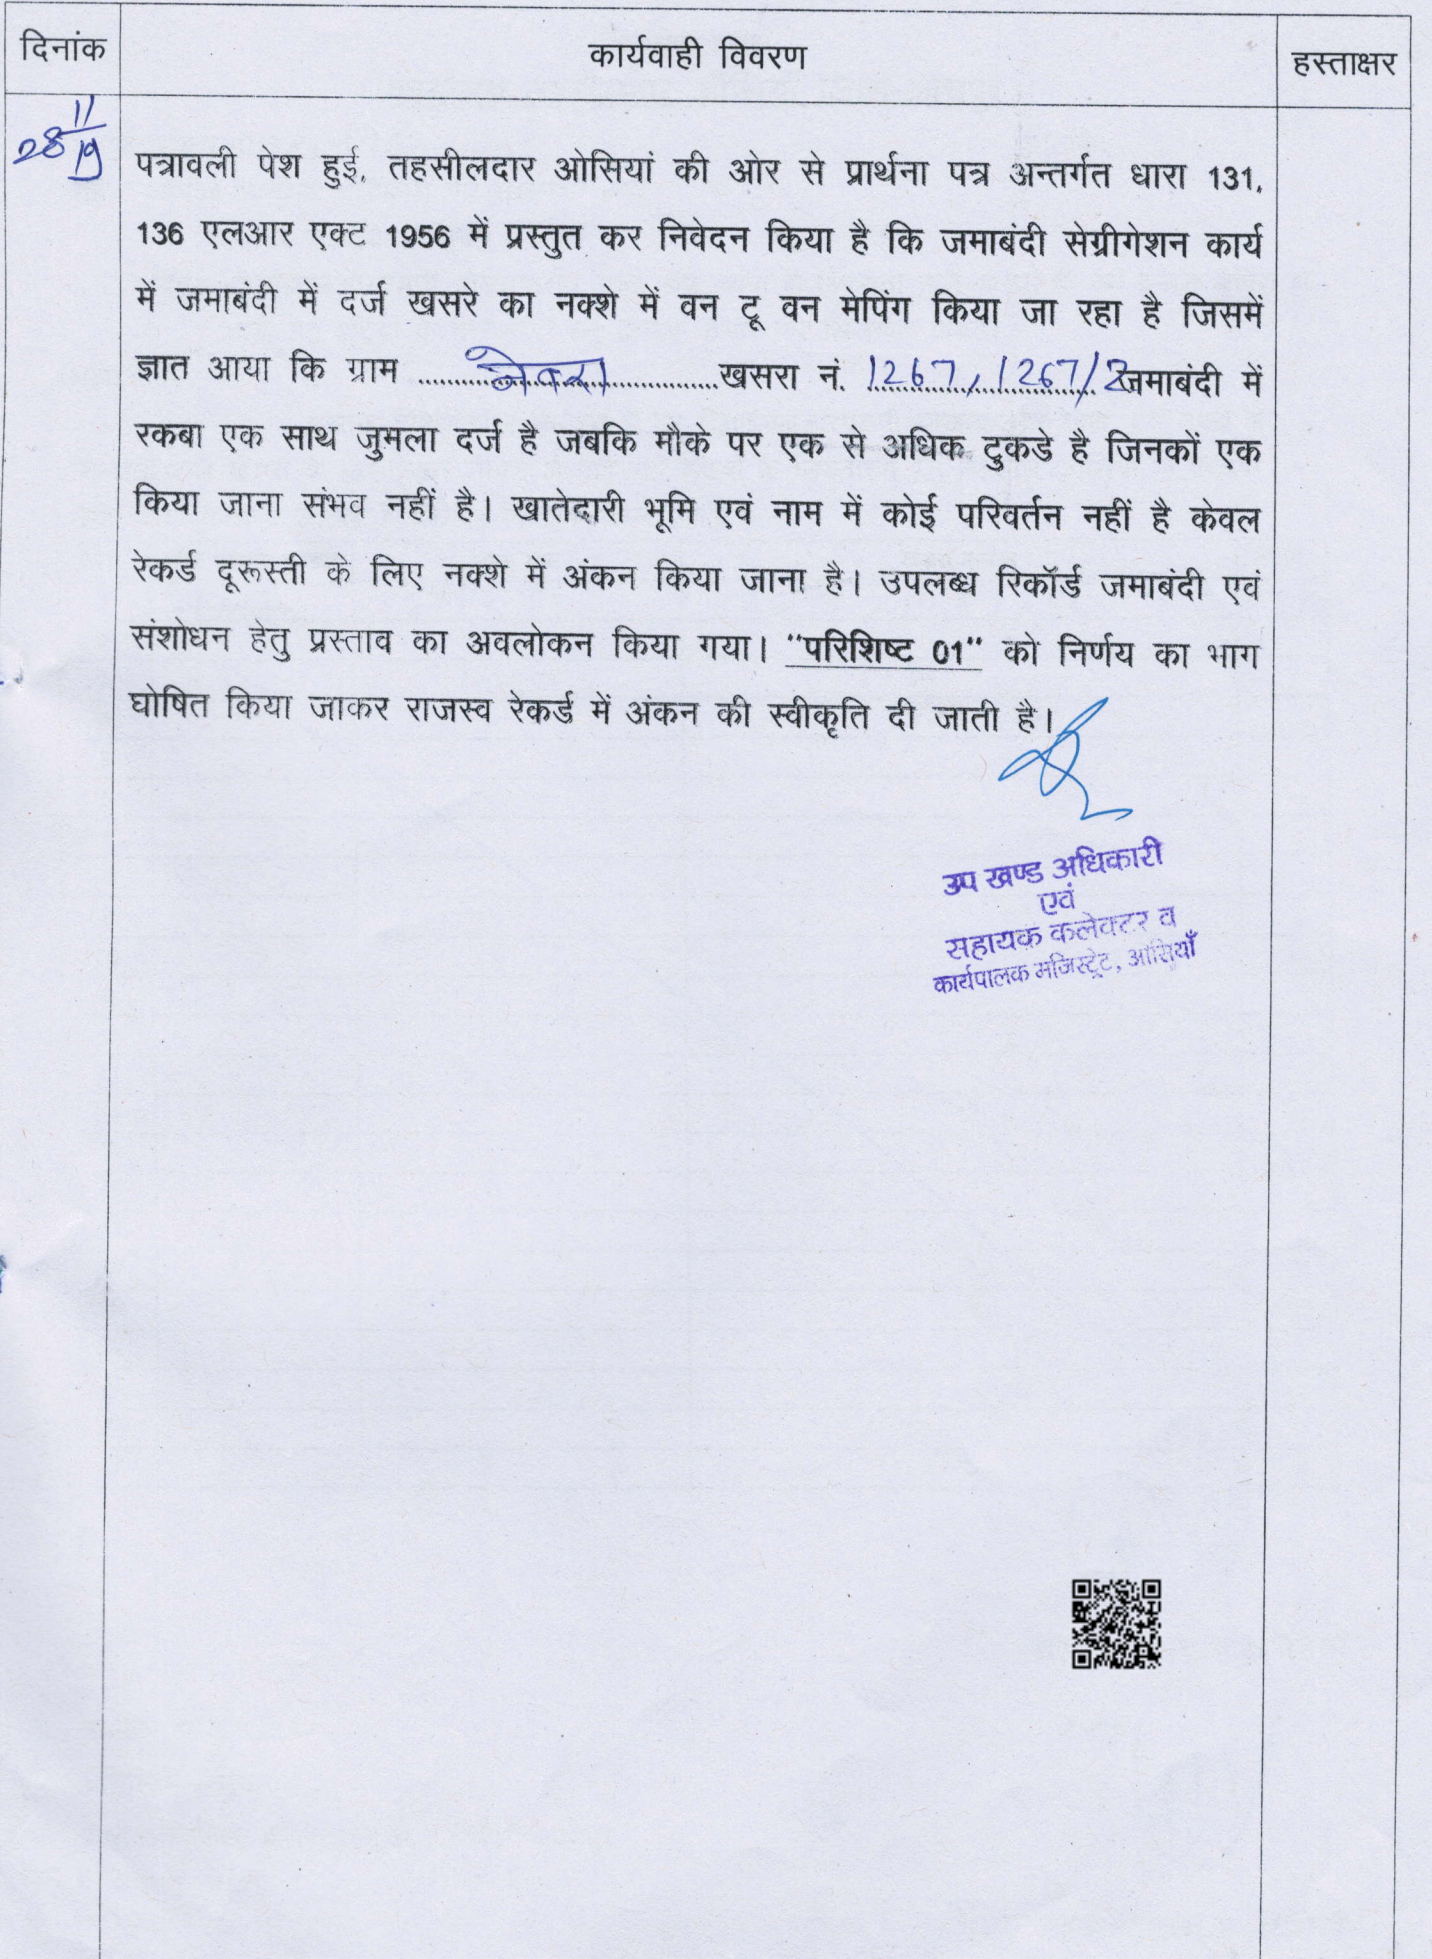 दिनांक
कार्यवाही विवरण
हस्ताक्षर
28 11/19
पत्रावली पेश हुई, तहसीलदार ओसियां की ओर से प्रार्थना पत्र अन्तर्गत धारा 131,
136 एलआर एक्ट 1956 में प्रस्तुत कर निवेदन किया है कि जमाबंदी सेग्रीगेशन कार्य
में जमाबंदी में दर्ज खसरे का नक्शे में वन टू वन मेपिंग किया जा रहा है जिसमें
ज्ञात आया कि ग्राम ....नेवरा....खसरा नं. 1267, 1267/2 जमाबंदी में
रकबा एक साथ जुमला दर्ज है जबकि मौके पर एक से अधिक टुकडे है जिनकों एक
किया जाना संभव नहीं है। खातेदारी भूमि एवं नाम में कोई परिवर्तन नहीं है केवल
रेकर्ड दूरूस्ती के लिए नक्शे में अंकन किया जाना है। उपलब्ध रिकॉर्ड जमाबंदी एवं
संशोधन हेतु प्रस्ताव का अवलोकन किया गया। "परिशिष्ट 01" को निर्णय का भाग
घोषित किया जाकर राजस्व रेकर्ड में अंकन की स्वीकृति दी जाती है।
उप खण्ड अधिकारी
एवं
सहायक कलेक्टर व
कार्यपालक मजिस्ट्रेट, ओसियाँ